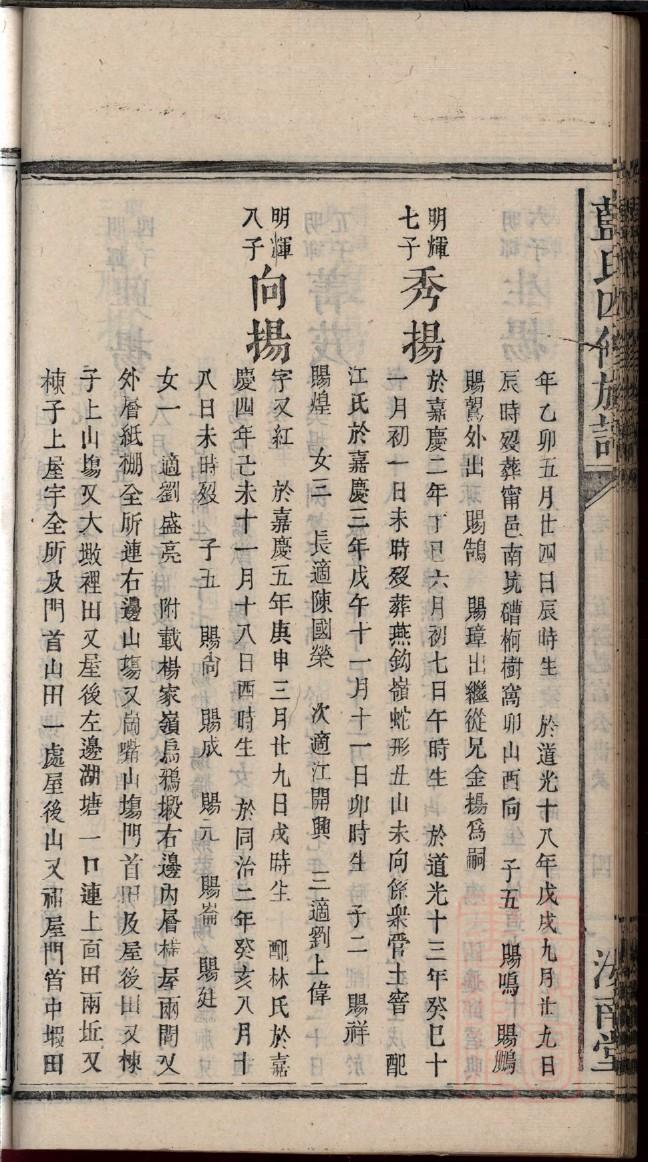 藍氏四修族譜
汝南堂
年乙卯五月廿四日辰時生 於道光十八年戊戌九月廿九日
辰時歿葬甯邑南坑磄桐樹窩卯山酉向 子五 賜鳴 賜鵬
賜鴛外出 賜鵠 賜璋出繼從兄金揚爲嗣
明輝七子秀揚 於嘉慶二年丁巳六月初七日午時生 於道光十三年癸巳十
一月初一日未時歿葬燕鈎嶺蛇形丑山未向係衆管土窨 配
江氏於嘉慶三年戊午十一月十二日卯時生 子二 賜祥
賜煌 女三 長適陳國榮 次適江開興 三適劉上偉
明輝八子向揚 字又紅 於嘉慶五年庚申三月廿九日戌時生 配林氏於嘉
慶四年己未十一月十八日酉時生 於同治二年癸亥八月十
八日未時歿 子五 賜尙 賜成 賜元 賜崙 賜廷
女一 適劉盛亮 附載楊家嶺烏鴉塅右邊內層樓屋兩間又
外層紙棚全所連右邊山塲又崗嘴山塲門首田及屋後田又棟
子上山塲又大墩裡田又屋後左邊湖塘一口連上面田兩坵又
棟子上屋宇全所及門首山田一處屋後山又 屋門首中塅田